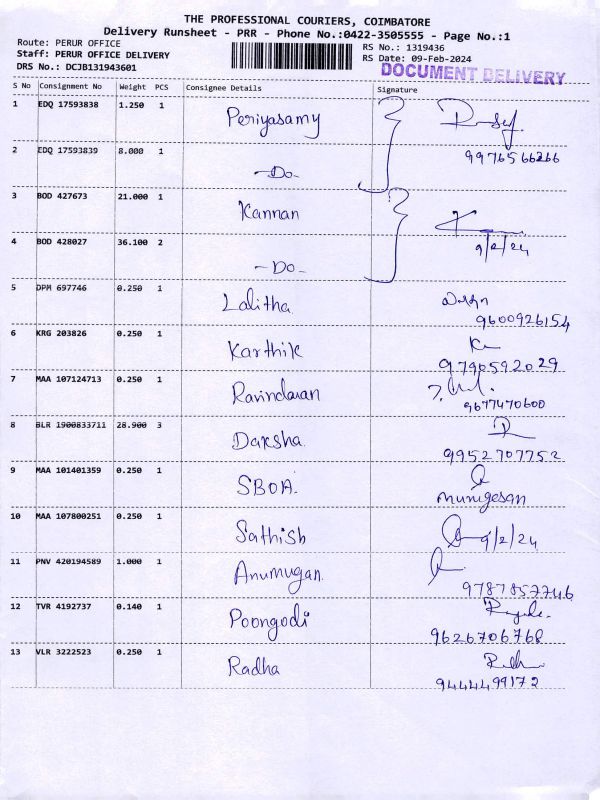 THE PROFESSIONAL COURIERS, COIMBATORE
Delivery Runsheet - PRR - Phone No.:0422-3505555 - Page No.:1
Route: PERUR OFFICE
Staff: PERUR OFFICE DELIVERY
DRS No.: DCJB131943601
RS No.: 1319436
RS Date: 09-Feb-2024
DOCUMENT DELIVERY
S No Consignment No Weight PCS Consignee Details Signature
1 EDQ 17593838 1.250 1 Periyasamy
9976566266
2 EDQ 17593839 8.000 1 -Do-
3 BOD 427673 21.000 1 Kannan
9/2/24
4 BOD 428027 36.100 2 -Do-
5 DPM 697746 0.250 1 Lalitha
9600926154
6 KRG 203826 0.250 1 Karthik
9790592029
7 MAA 107124713 0.250 1 Ravindaran
9677470600
8 BLR 1900833711 28.900 3 Daksha
9952707752
9 MAA 101401359 0.250 1 SBOA
murugesan
10 MAA 107800251 0.250 1 Sathish 9/2/24
11 PNV 420194589 1.000 1 Arumugan
9787857746
12 TVR 4192737 0.140 1 Poongodi
9626706768
13 VLR 3222523 0.250 1 Radha
9444499172